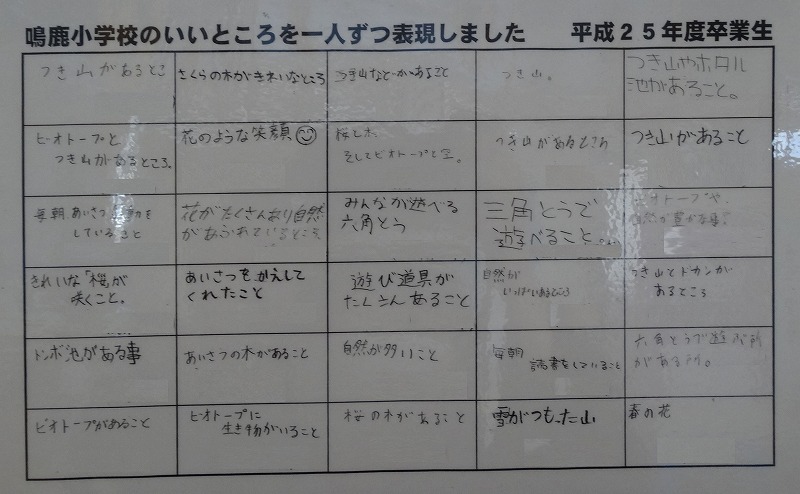 鳴鹿小学校のいいところを一人ずつ表現しました 平成25年度卒業生
つき山があるとこ
さくらの木がきれいなところ
つき山などがあること
つき山。
つき山やホタル
池があること。
ビオトープと
つき山があるところ。
花のような笑顔☺
桜と木
そしてビオトープと空。
つき山があるところ
つき山があること
毎朝 あいさつ 動を
していること
花がたくさんあり自然
があふれているところ
みんなが遊べる
六角とう
三角とうで
遊べること。
オトープや、
自然が豊かな事!
きれいな「桜」が
咲くこと。
あいさつを、かえして
くれたこと
遊び道具が
たくさんあること
自然が
いっぱいあるところ
つき山とドカンが
あるところ
トンボ池がある事
あいさつの木があること
自然が多いこと
毎朝
読書をしていること
六角とうで遊ぶ所
がある所。
ビオトープがあること
ビオトープに
生き物がいること
桜の木があること
雪がつもった山
春の花